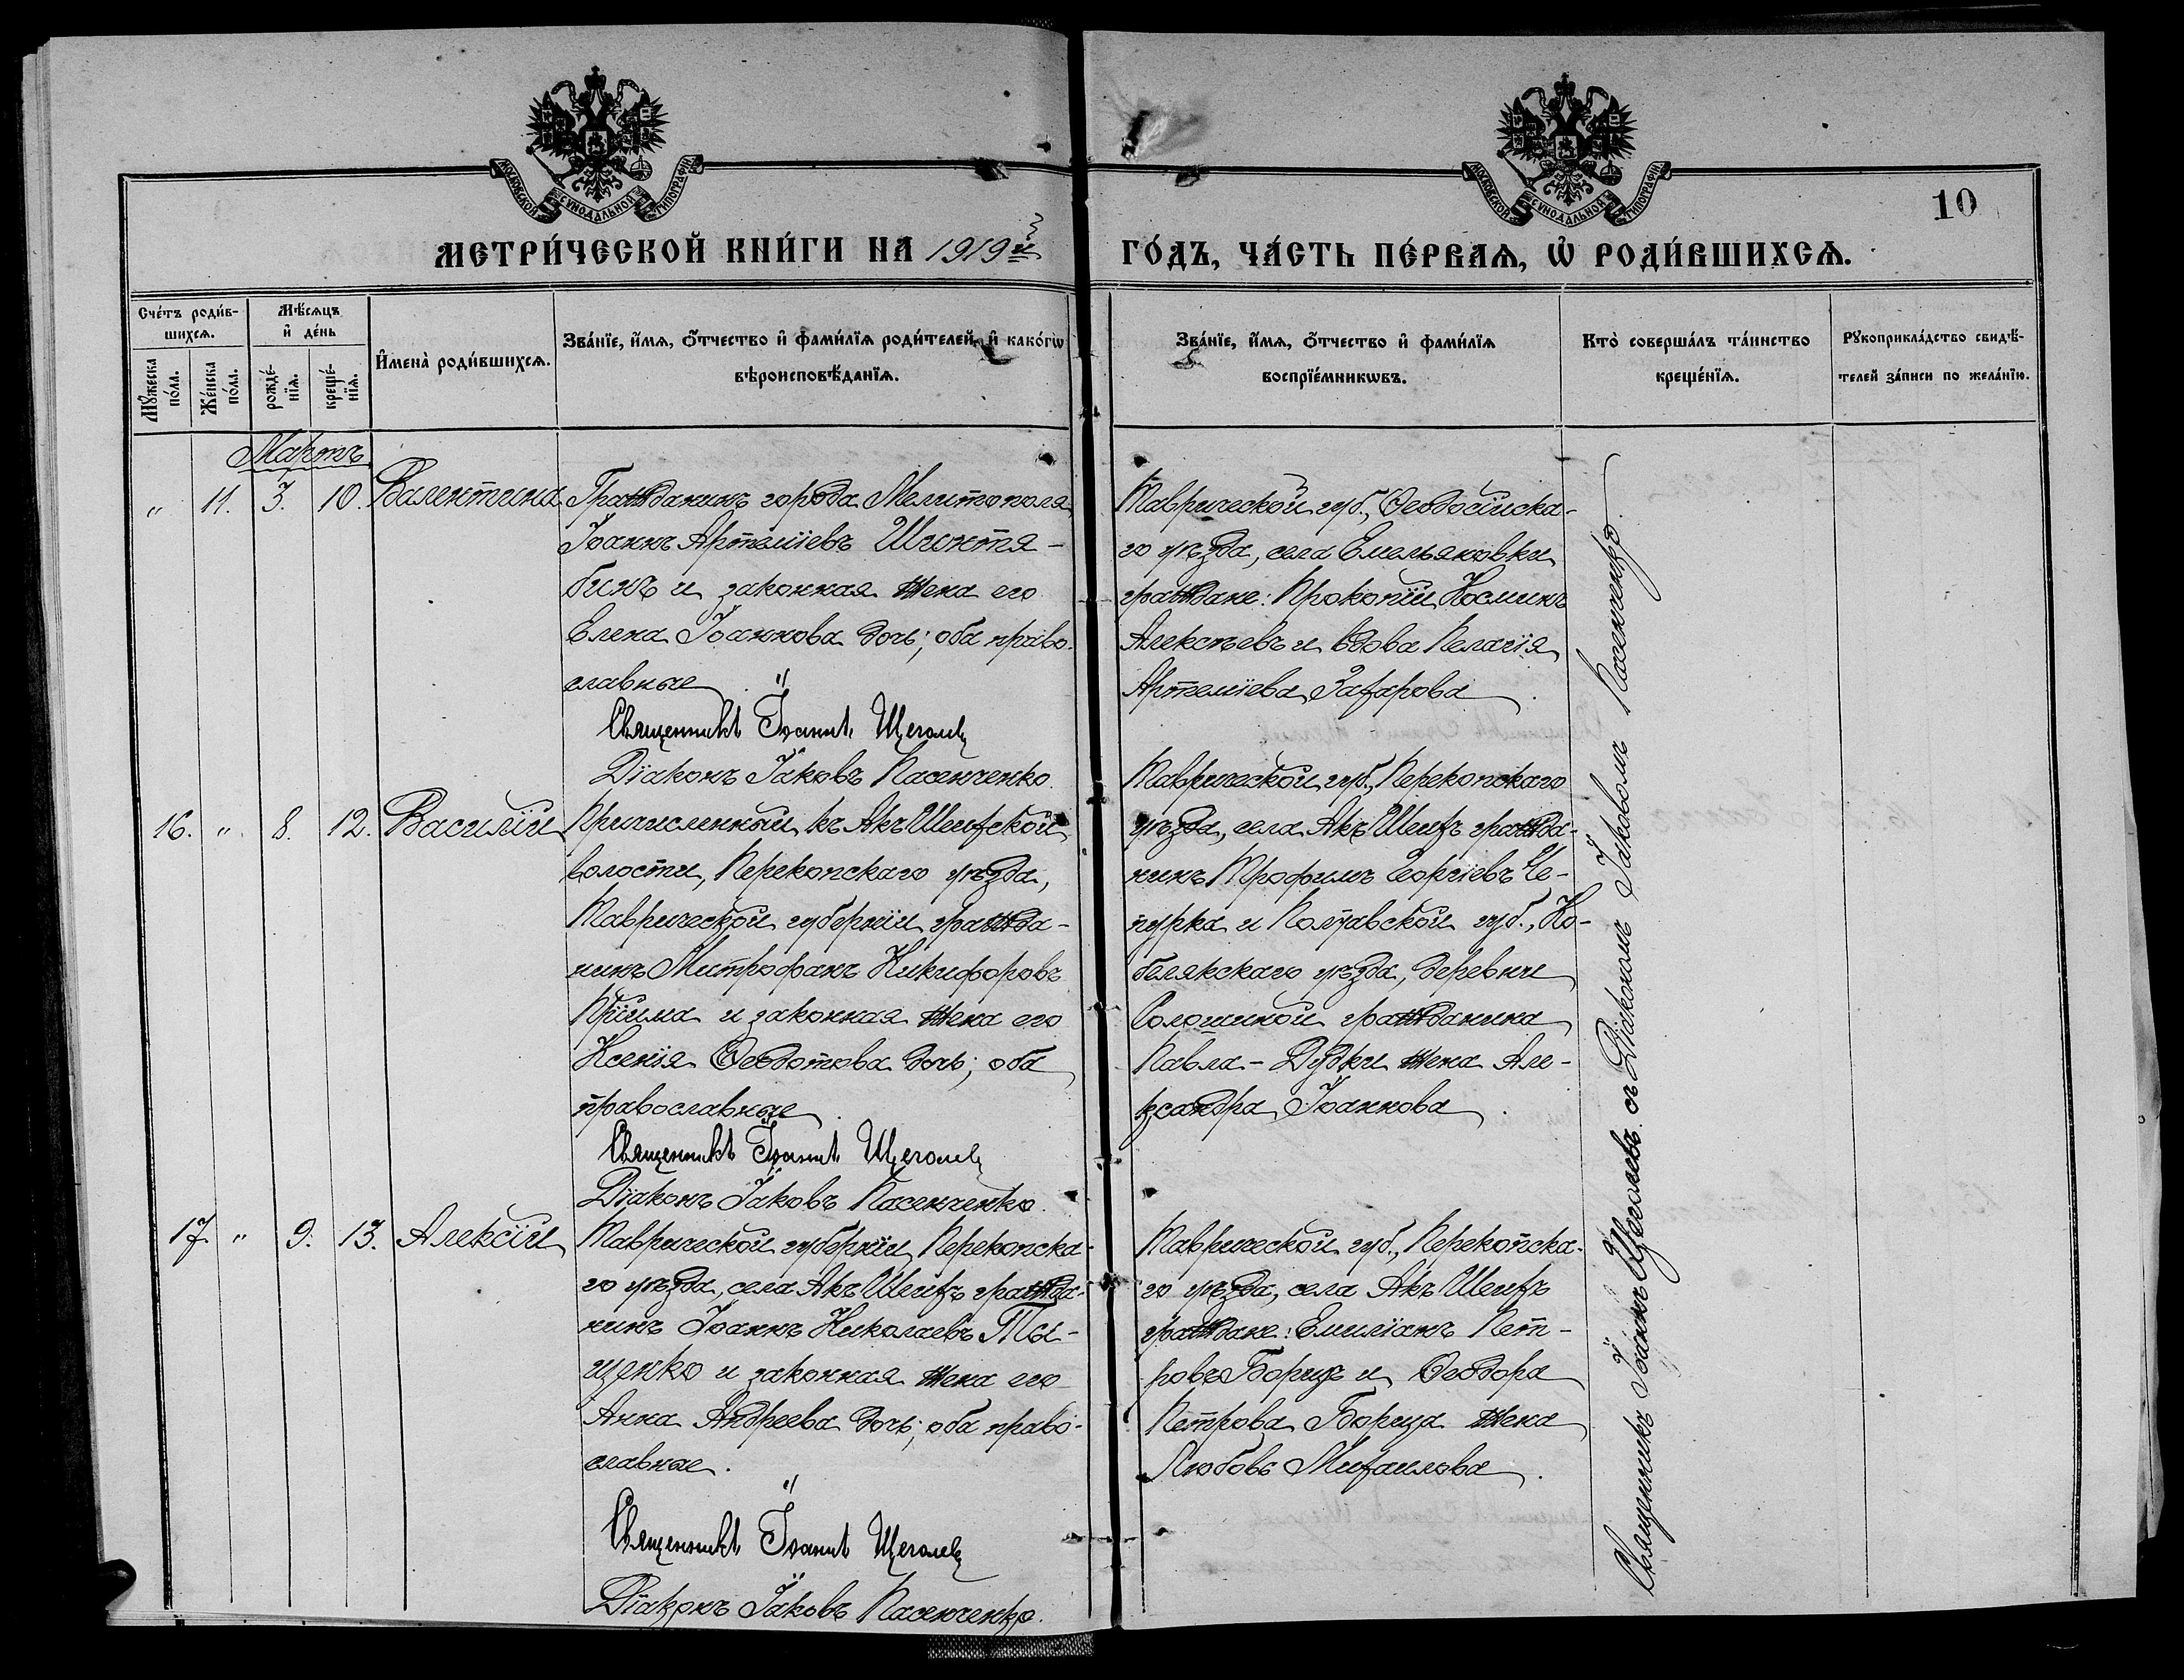 МОСКОВСКОЙ СѴНОДАЛЬНОЙ ТИПОГРАФІИ
МОСКОВСКОЙ СѴНОДАЛЬНОЙ ТИПОГРАФІИ
10
МЕТРИ́ЧЕСКОЙ КНИ́ГИ НА 1919й
ГО́ДЪ, ЧА́СТЬ ПЕ́РВАѦ, Ѡ҆ РОДИ́ВШИХСѦ.
Сче́тъ роди́в-
шихсѧ.
Мꙋ́жеска по́ла.
Же́нска по́ла.
Мѣ́сѧцъ
и҆ де́нь
рожде́-
нїѧ.
креще́-
нїѧ.
И҆мена̀ роди́вшихсѧ.
Зва́нїе, и҆́мѧ, ѻ҆́тчество и҆ фами́лїѧ роди́телей, и҆ како́гѡ
вѣроисповѣ́данїѧ.
Зва́нїе, и҆́мѧ, ѻ҆́тчество и҆ фами́лїѧ
воспрїе́мникѡвъ.
Кто̀ соверша́лъ та́инство
креще́нїѧ.
Рꙋкоприкла́дство свидѣ́-
телей за́писи по жела́нїю.
Мартъ
" 11. 3. 10. Валентина
Гражданинъ города Мелитополя
Іоаннъ Артеміевъ Шинтя-
бинъ и законная жена его
Елена Іоаннова дочь; оба право-
славные
Священникъ Іоаннъ Щеголевъ
Діаконъ Іаковъ Пасенченко.
Таврической губ., Ѳеодосійска-
го уѣзда, села Емельяновки
граждане: Прокопій Косминъ
Алексѣевъ и вдова Пелагія
Артеміева Захарова.
16. " 8. 12. Василій
Причисленный къ Акъ Шеихской
волости, Перекопскаго уѣзда,
Таврической губерніи гражда-
нинъ Митрофанъ Никифоровъ
Пріима и законная жена его
Ксенія Ѳеодотова дочь; оба
православные.
Священникъ Іоаннъ Щеголевъ
Діаконъ Іаковъ Пасенченко.
Таврической губ., Перекопскаго
уѣзда, села Акъ Шеихъ гражда-
нинъ Трофимъ Георгіевъ Че-
пурка и Полтавской губ., Ко-
белякскаго уѣзда, деревни
Солошиной гражданина
Павла - Дудки жена Але-
ксандра Іоаннова.
17. " 9. 13. Алексій
Таврической губерніи, Перекопска-
го уѣзда, села Акъ Шеихъ гражда-
нинъ Іоаннъ Николаевъ Ты-
щенко и законная жена его
Анна Андреева дочь; оба право-
славные.
Священникъ Іоаннъ Щеголевъ
Діаконъ Іаковъ Пасенченко.
Таврической губ., Перекопска-
го уѣзда, села Акъ Шеихъ
граждане: Емиліанъ Пет-
ровъ Борщъ и Ѳеодора
Петрова Борща жена
Любовь Михаилова.
Священникъ Іоаннъ Щеголевъ съ Діакономъ Іаковомъ Пасенченко.